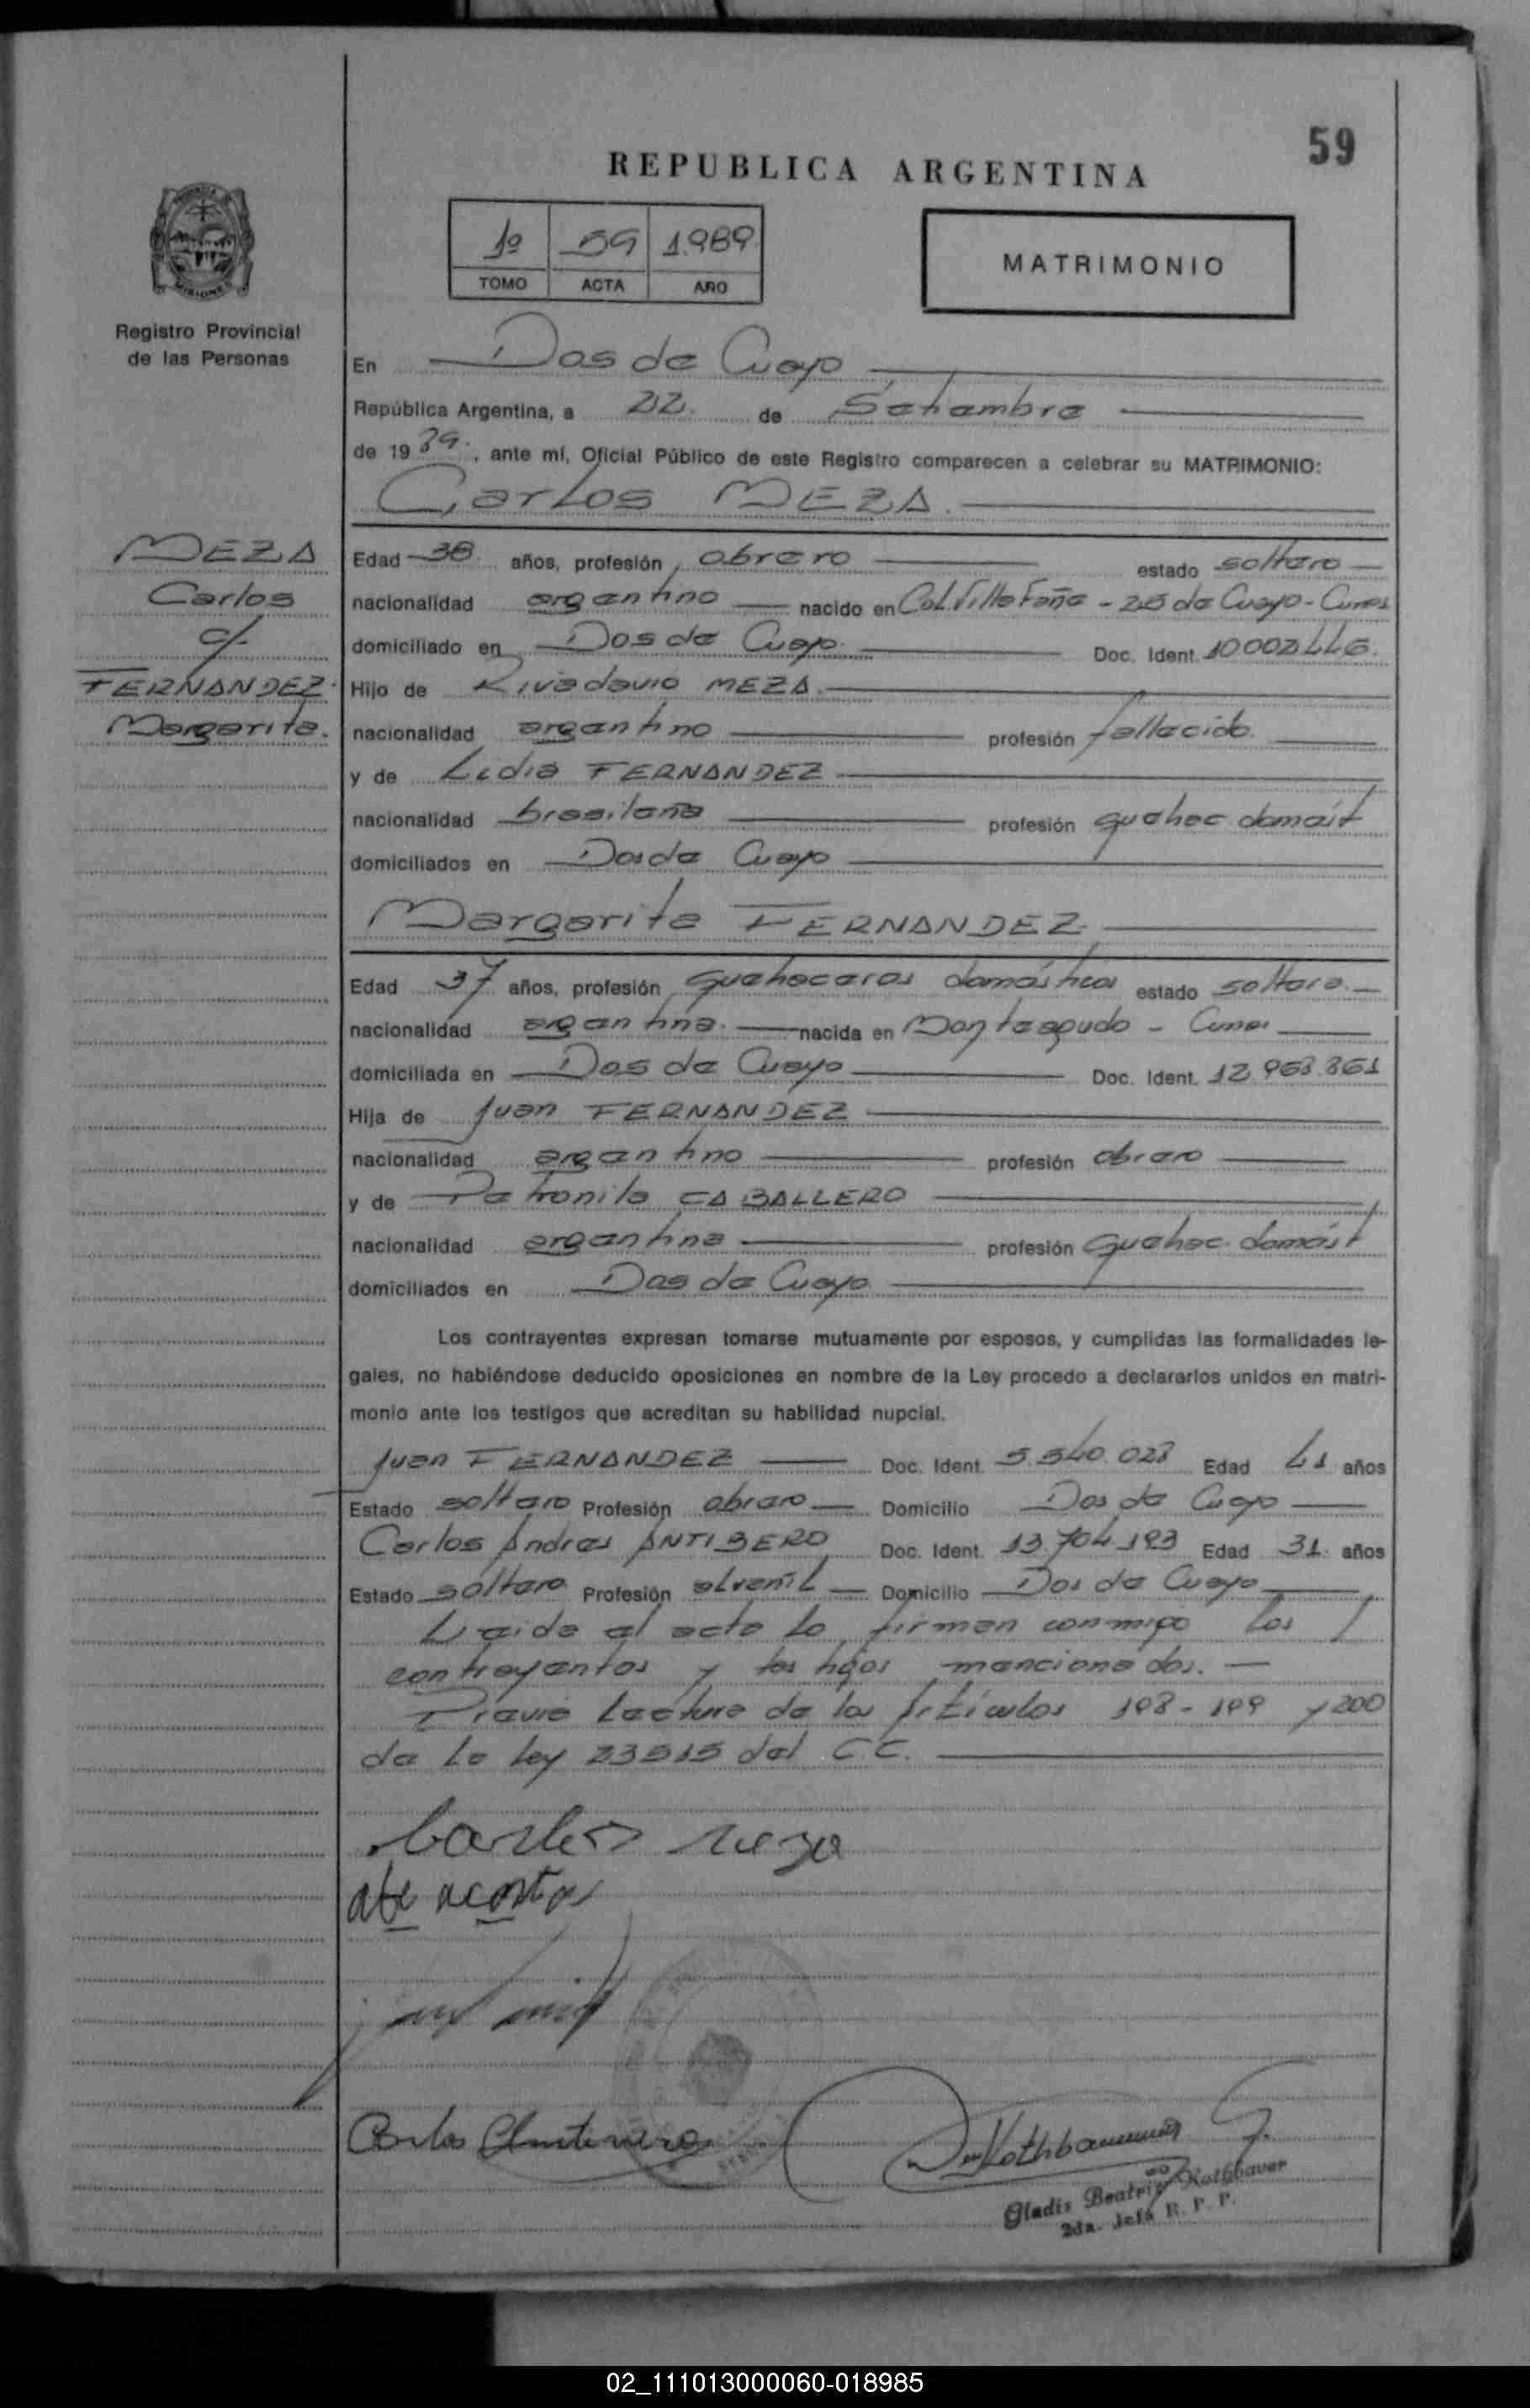 59
REPUBLICA ARGENTINA
1º 59 1.989
TOMO ACTA AÑO
MATRIMONIO
MISIONES
Registro Provincial
de las Personas
En Dos de Mayo
República Argentina, a 22 de Setiembre
de 1989, ante mí, Oficial Público de este Registro comparecen a celebrar su MATRIMONIO:
Carlos MEZA
MEZA
Carlos
c/
FERNANDEZ
Margarita.
Edad 38 años, profesión obrero estado soltero
nacionalidad argentino nacido en Col. Villafañe - 25 de Mayo -
domiciliado en Dos de Mayo Doc. Ident. 10002446
Hijo de Rivadavio MEZA
nacionalidad argentino profesión fallecido
y de Lidia FERNANDEZ
nacionalidad brasileña profesión quehac domést
domiciliados en Dos de Mayo
Margarita FERNANDEZ
Edad 37 años, profesión quehaceres domésticos estado soltera
nacionalidad argentina nacida en Monteagudo -
domiciliada en Dos de Mayo Doc. Ident. 12.963.861
Hija de Juan FERNANDEZ
nacionalidad argentino profesión obrero
y de Petronila CABALLERO
nacionalidad argentina profesión quehac. domést
domiciliados en Dos de Mayo
Los contrayentes expresan tomarse mutuamente por esposos, y cumplidas las formalidades le-
gales, no habiéndose deducido oposiciones en nombre de la Ley procedo a declararlos unidos en matri-
monio ante los testigos que acreditan su habilidad nupcial.
Juan FERNANDEZ Doc. Ident. 5.540.028 Edad 41 años
Estado soltero Profesión obrero Domicilio Dos de Mayo
Carlos Andres ANTIBERO Doc. Ident. 13.704.193 Edad 31 años
Estado soltero Profesión albañil Domicilio Dos de Mayo
Leida el acta la firman conmigo los
contrayentes y los tigos mencionados.
Previa lectura de los Artículos 198 - 199 y 200
de la ley 23515 del C.C.
Carlos meza
Carlos
Gladis Beatriz Rothbauer
2da. Jefa R. P. P.
02_111013000060-018985